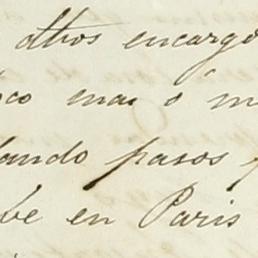 dhos encargo
oco mas ó m
dando pasos p
be en Paris